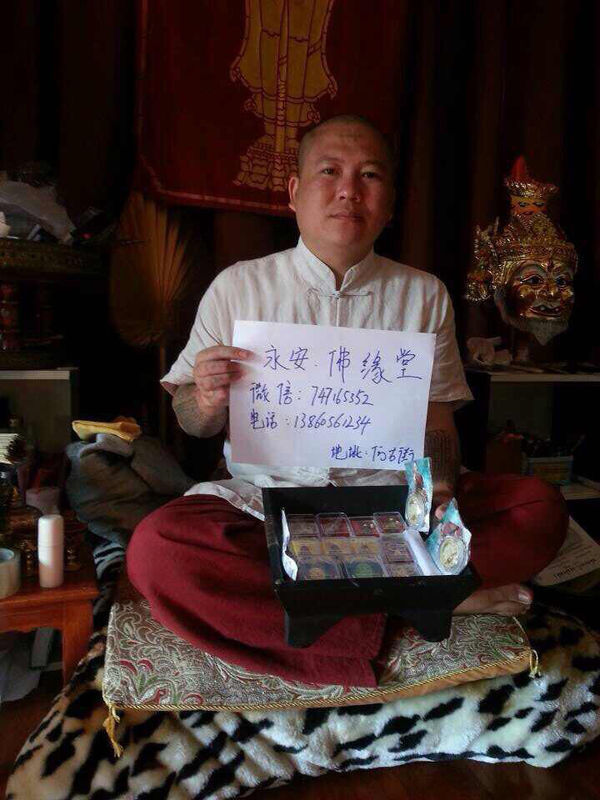 永安.佛缘堂
微信：747165352
电话：13860561234
地址：阿吉街